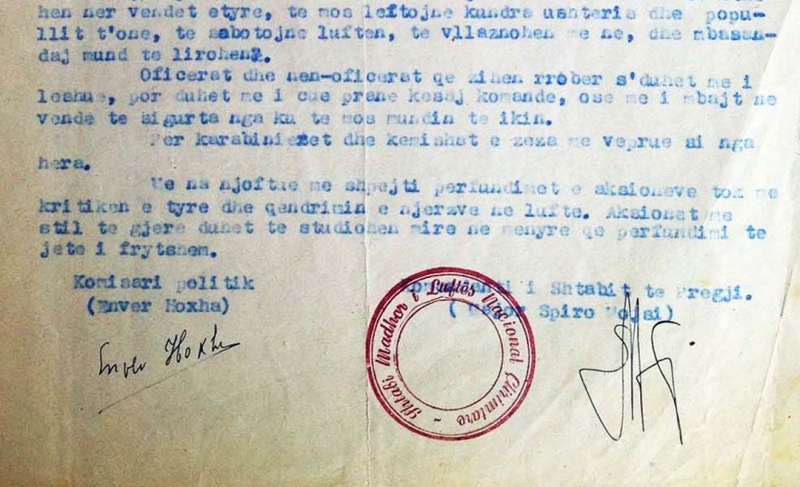 hen ner vendet etyre, te mos leftojne kundra ushteris dhe popu-
llit t'one, te sabotojne luften, te vllaznohen me ne, dhe mbasan-
daj mund te lirohen.
Oficerat dhe nen-oficerat qe zihen rrober s'duhet me i
leshue, por duhet me i cue prane kesaj komande, ose me i mbajt ne
vende te sigurta nga ku te mos mundin te ikin.
Per karabinieret dhe kemishat e zeza me veprue si nga
hera.
Me na njoftue me shpejti perfundimet e aksioneve tok me
kritiken e tyre dhe qendrimin e njerzve ne lufte. Aksionet me
stil te gjere duhet te studiohen mire ne menyre qe perfundimi te
jete i frytshem.
Komisari politik
(Enver Hoxha)
Komandanti i Shtabit te Pregj.
( Major Spiro Mojsi)
Enver Hoxha
Shtabi Madhor i Luftës Nacional Çlirimtare ~